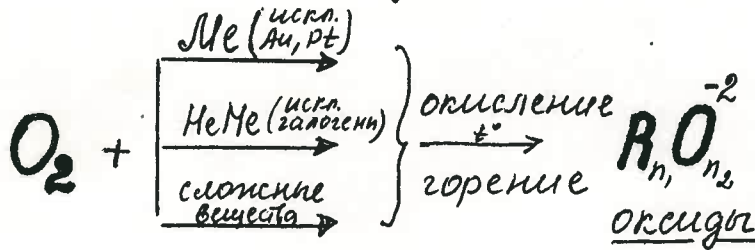 Ме (искл. Au, Pt)
O₂ + НеМе (искл. галогены)
сложные вещества
окисление
t°
горение
Rₙ₁Oₙ₂⁻²
оксиды